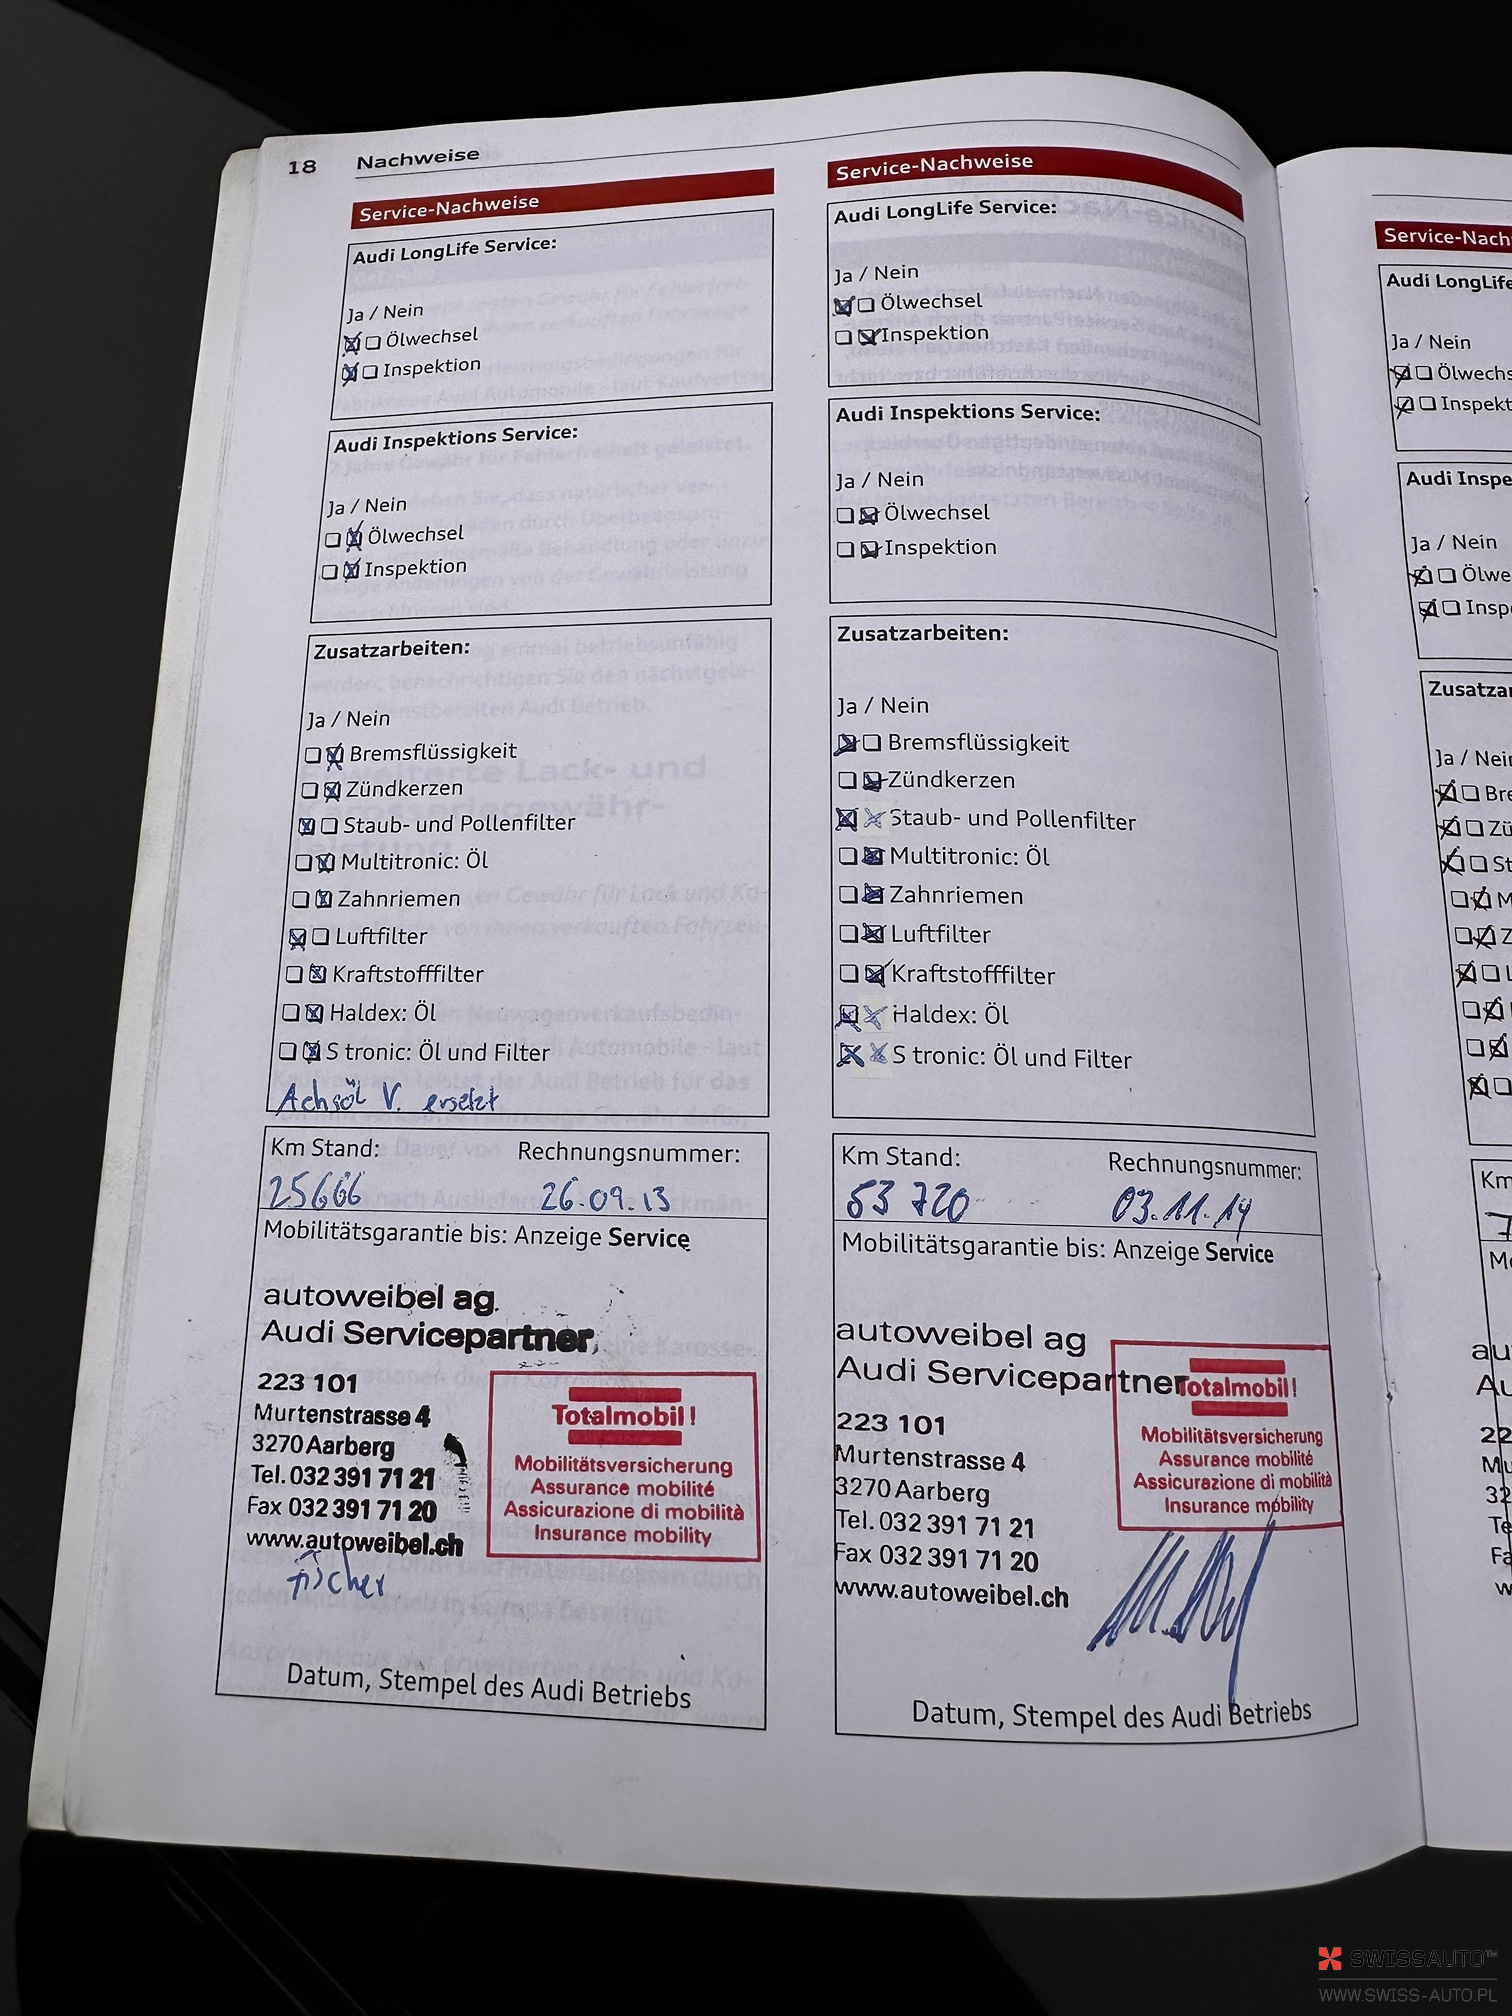 18 Nachweise
Service-Nachweise
Audi LongLife Service:
Ja / Nein
Ölwechsel
Inspektion
Audi Inspektions Service:
Ja / Nein
Ölwechsel
Inspektion
Zusatzarbeiten:
Ja / Nein
Bremsflüssigkeit
Zündkerzen
Staub- und Pollenfilter
Multitronic: Öl
Zahnriemen
Luftfilter
Kraftstofffilter
Haldex: Öl
S tronic: Öl und Filter
Achsöl V. ersetzt
Km Stand: Rechnungsnummer:
25666 26.09.13
Mobilitätsgarantie bis: Anzeige Service
autoweibel ag
Audi Servicepartner
223 101
Murtenstrasse 4
3270 Aarberg
Tel. 032 391 71 21
Fax 032 391 71 20
www.autoweibel.ch
Fischer
Totalmobil!
Mobilitätsversicherung
Assurance mobilité
Assicurazione di mobilità
Insurance mobility
Datum, Stempel des Audi Betriebs
Service-Nachweise
Audi LongLife Service:
Ja / Nein
Ölwechsel
Inspektion
Audi Inspektions Service:
Ja / Nein
Ölwechsel
Inspektion
Zusatzarbeiten:
Ja / Nein
Bremsflüssigkeit
Zündkerzen
Staub- und Pollenfilter
Multitronic: Öl
Zahnriemen
Luftfilter
Kraftstofffilter
Haldex: Öl
S tronic: Öl und Filter
Km Stand: Rechnungsnummer:
53 720 03.11.14
Mobilitätsgarantie bis: Anzeige Service
autoweibel ag
Audi Servicepartner
223 101
Murtenstrasse 4
3270 Aarberg
Tel. 032 391 71 21
Fax 032 391 71 20
www.autoweibel.ch
Totalmobil!
Mobilitätsversicherung
Assurance mobilité
Assicurazione di mobilità
Insurance mobility
Datum, Stempel des Audi Betriebs
Service-Nach
Audi LongLife
Ja / Nein
Ölwechs
Inspekt
Audi Inspe
Ja / Nein
Ölwe
Insp
Zusatzar
Ja / Nein
Bre
Zü
St
M
Z
L
Km
7
Mo
au
Au
22
Mu
32
Te
Fa
w
SWISSAUTO™
WWW.SWISS-AUTO.PL